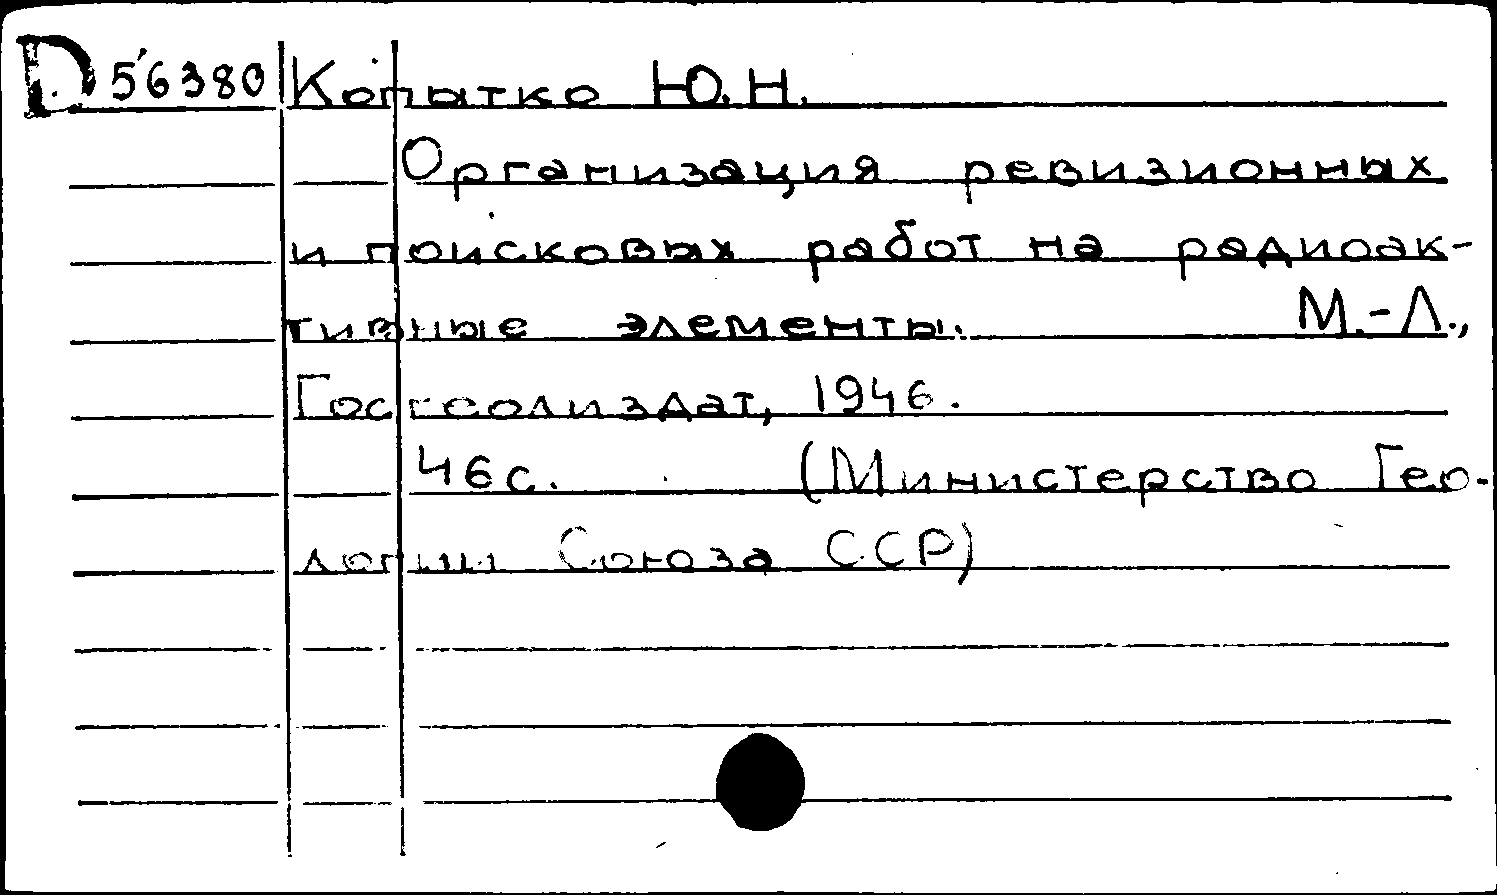 D 56380 Копытко Ю.Н.
Организация ревизионных
и поисковых работ на радиоак-
тивные элементы. М.-Л.,
Госгеолиздат, 1946.
46с. (Министерство Гео-
логии Союза ССР)